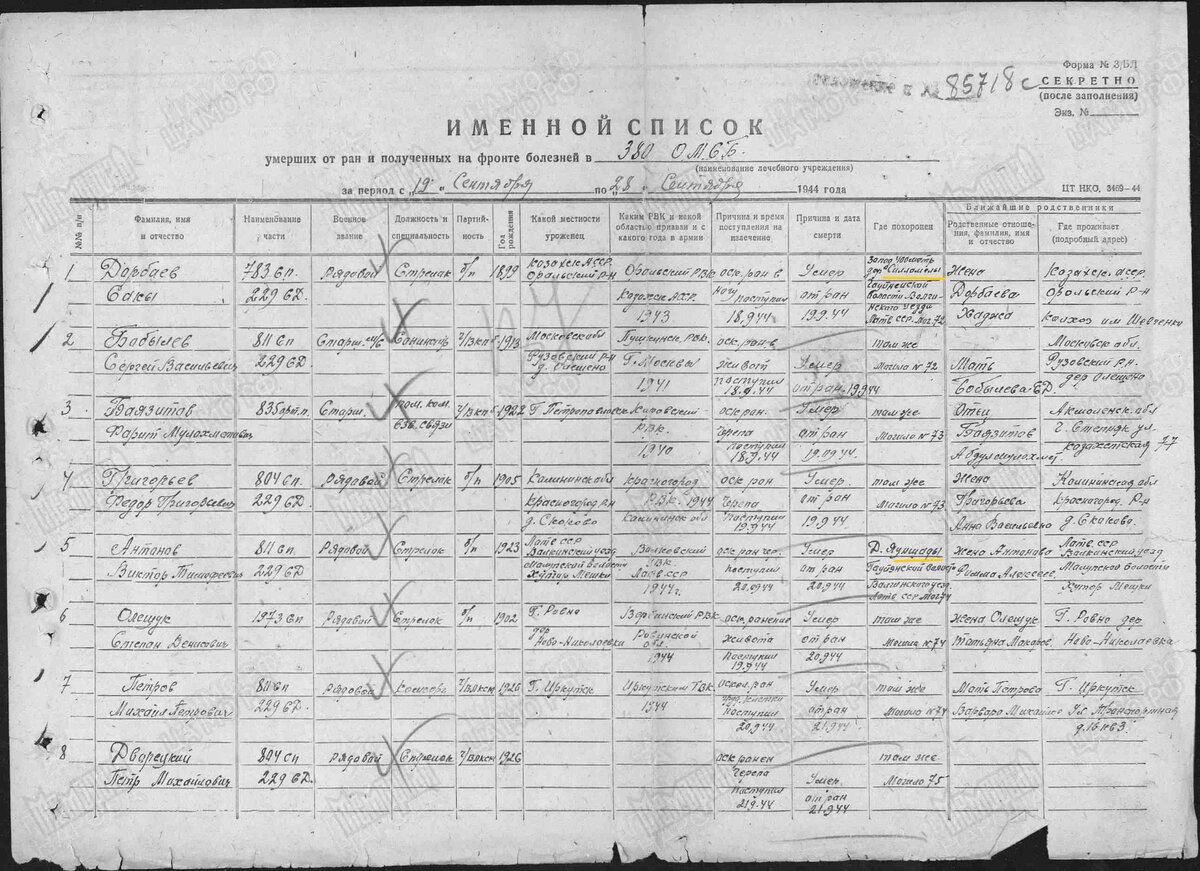 Форма № 3/БЛ
СЕКРЕТНО
(после заполнения)
Экз. №
85718с
ИМЕННОЙ СПИСОК
умерших от ран и полученных на фронте болезней в 380 ОМСБ.
(наименование лечебного учреждения)
за период с „19“ Сентября по „28“ Сентября 1944 года
ЦТ НКО. 3469—44
№№ п/п
Фамилия, имя и отчество
Наименование части
Военное звание
Должность и специальность
Партийность
Год рождения
Какой местности уроженец
Каким РВК и какой областью призван и с какого года в армии
Причина и время поступления на излечение
Причина и дата смерти
Где похоронен
Ближайшие родственники
Родственные отношения, фамилия, имя и отчество
Где проживает (подробный адрес)
1 Дорбаев 783 сп. Рядовой Стрелок б/п 1899 Козахск АССР. Оральский Р-н Оральский РВК оск. ран в Умер Запад. дер. Силламелы Жена Козахск. ACCP.
Еакы 229 СД. Козахск АССР. ногу Поступил от ран Гауйенской волости Дорбаева Оральский Р-н
1943 18.9.44 19.9.44 Латв ССР. Мог. 72 Хаджа колхоз им Шевченко
2 Бобылев 811 сп Старш. с-т Санинстр ч/вкп б 1913 Московск обл Пушкинск. РВК. оск. ран. в там же Московск обл.
Сергей Васильевич 229 СД. Рузовский Р-н д. Олешено Г. Москвы живот Умер Могила № 72 Мать Рузовский Р-н.
1941 поступил 18.9.44 от ран. 19.9.44 Бобылева Е.Д. дер Олешено
3 Баязитов 835 арт. п. Старш. пом. ком. взв. связи ч/вкп б 1922 Г. Петропавловск Кировский оск. ран. Умер там же Отец Акмоленск. обл
Фарит Мулохматовиц РВК. Черепа от ран Могила № 73 Баязитов г. Степняк ул.
1940 Поступил 18.9.44 19.09.44. Абдулмулохмет Казахстская 77
4 Григорьев 804 сп. Рядовой Стрелок б/п 1905 Калининск. обл Красногород оск. ран Умер там же Жена Калининской обл
Федор Григорьевич 229 СД Красногород. Р-н РВК. 1944 Черепа от ран Могила № 73 Григорьева Красногород. Р-н
д. Скоково Калининск обл Поступил 19.9.44 19.9.44 Анна Васильевна д. Скаково.
5 Антонов 811 сп Рядовой Стрелок б/п 1923 Латв ССР Валкинский уезд Валковский оск ран чер. Умер Д. Яунцады Жена Антонова Латв. ССР Валкинский уезд
Виктор Тимофеевич 229 СД. волости Хутор Мешки РВК Латв. ССР поступил от ран Гауйянской волости Фима Алексеев. волости
1944 г. 20.09.44 20.9.44 Валгинского уезд. Латв ССР Мог 74 Хутор Мешки
6 Олещук 1973 сп Рядовой Стрелок б/п 1902 Г. Ровно РВК. оск ранение Умер там же Жена Олещук Г. Ровно дер
Степан Денисович 229 СД. дер Ново-Николаевка Ровинской обл. живота от ран Могила № 74 Татьяна Макаров. Ново-Николаевка
1944 Поступил 19.9.44 20.9.44
7 Петров 811 сп Рядовой комсорг ч/влксм 1926 Г. Иркутск Иркутским РВК. оскол. ран Умер там же Мать Петрова Г. Иркутск
Михаил Петрович 229 СД. 1944 Поступил от ран Могила № 74 Варвара Михайлов ул Транспортная
20.9.44 21.9.44 д. 16 кв 3.
8 Дварецкий 804 сп Рядовой Стрелок ч/влксм 1926 оск ранен там же.
Петр Михайлович 229 СД. Черепа Умер Могила 75
Поступил от ран
21.9.44 21.9.44